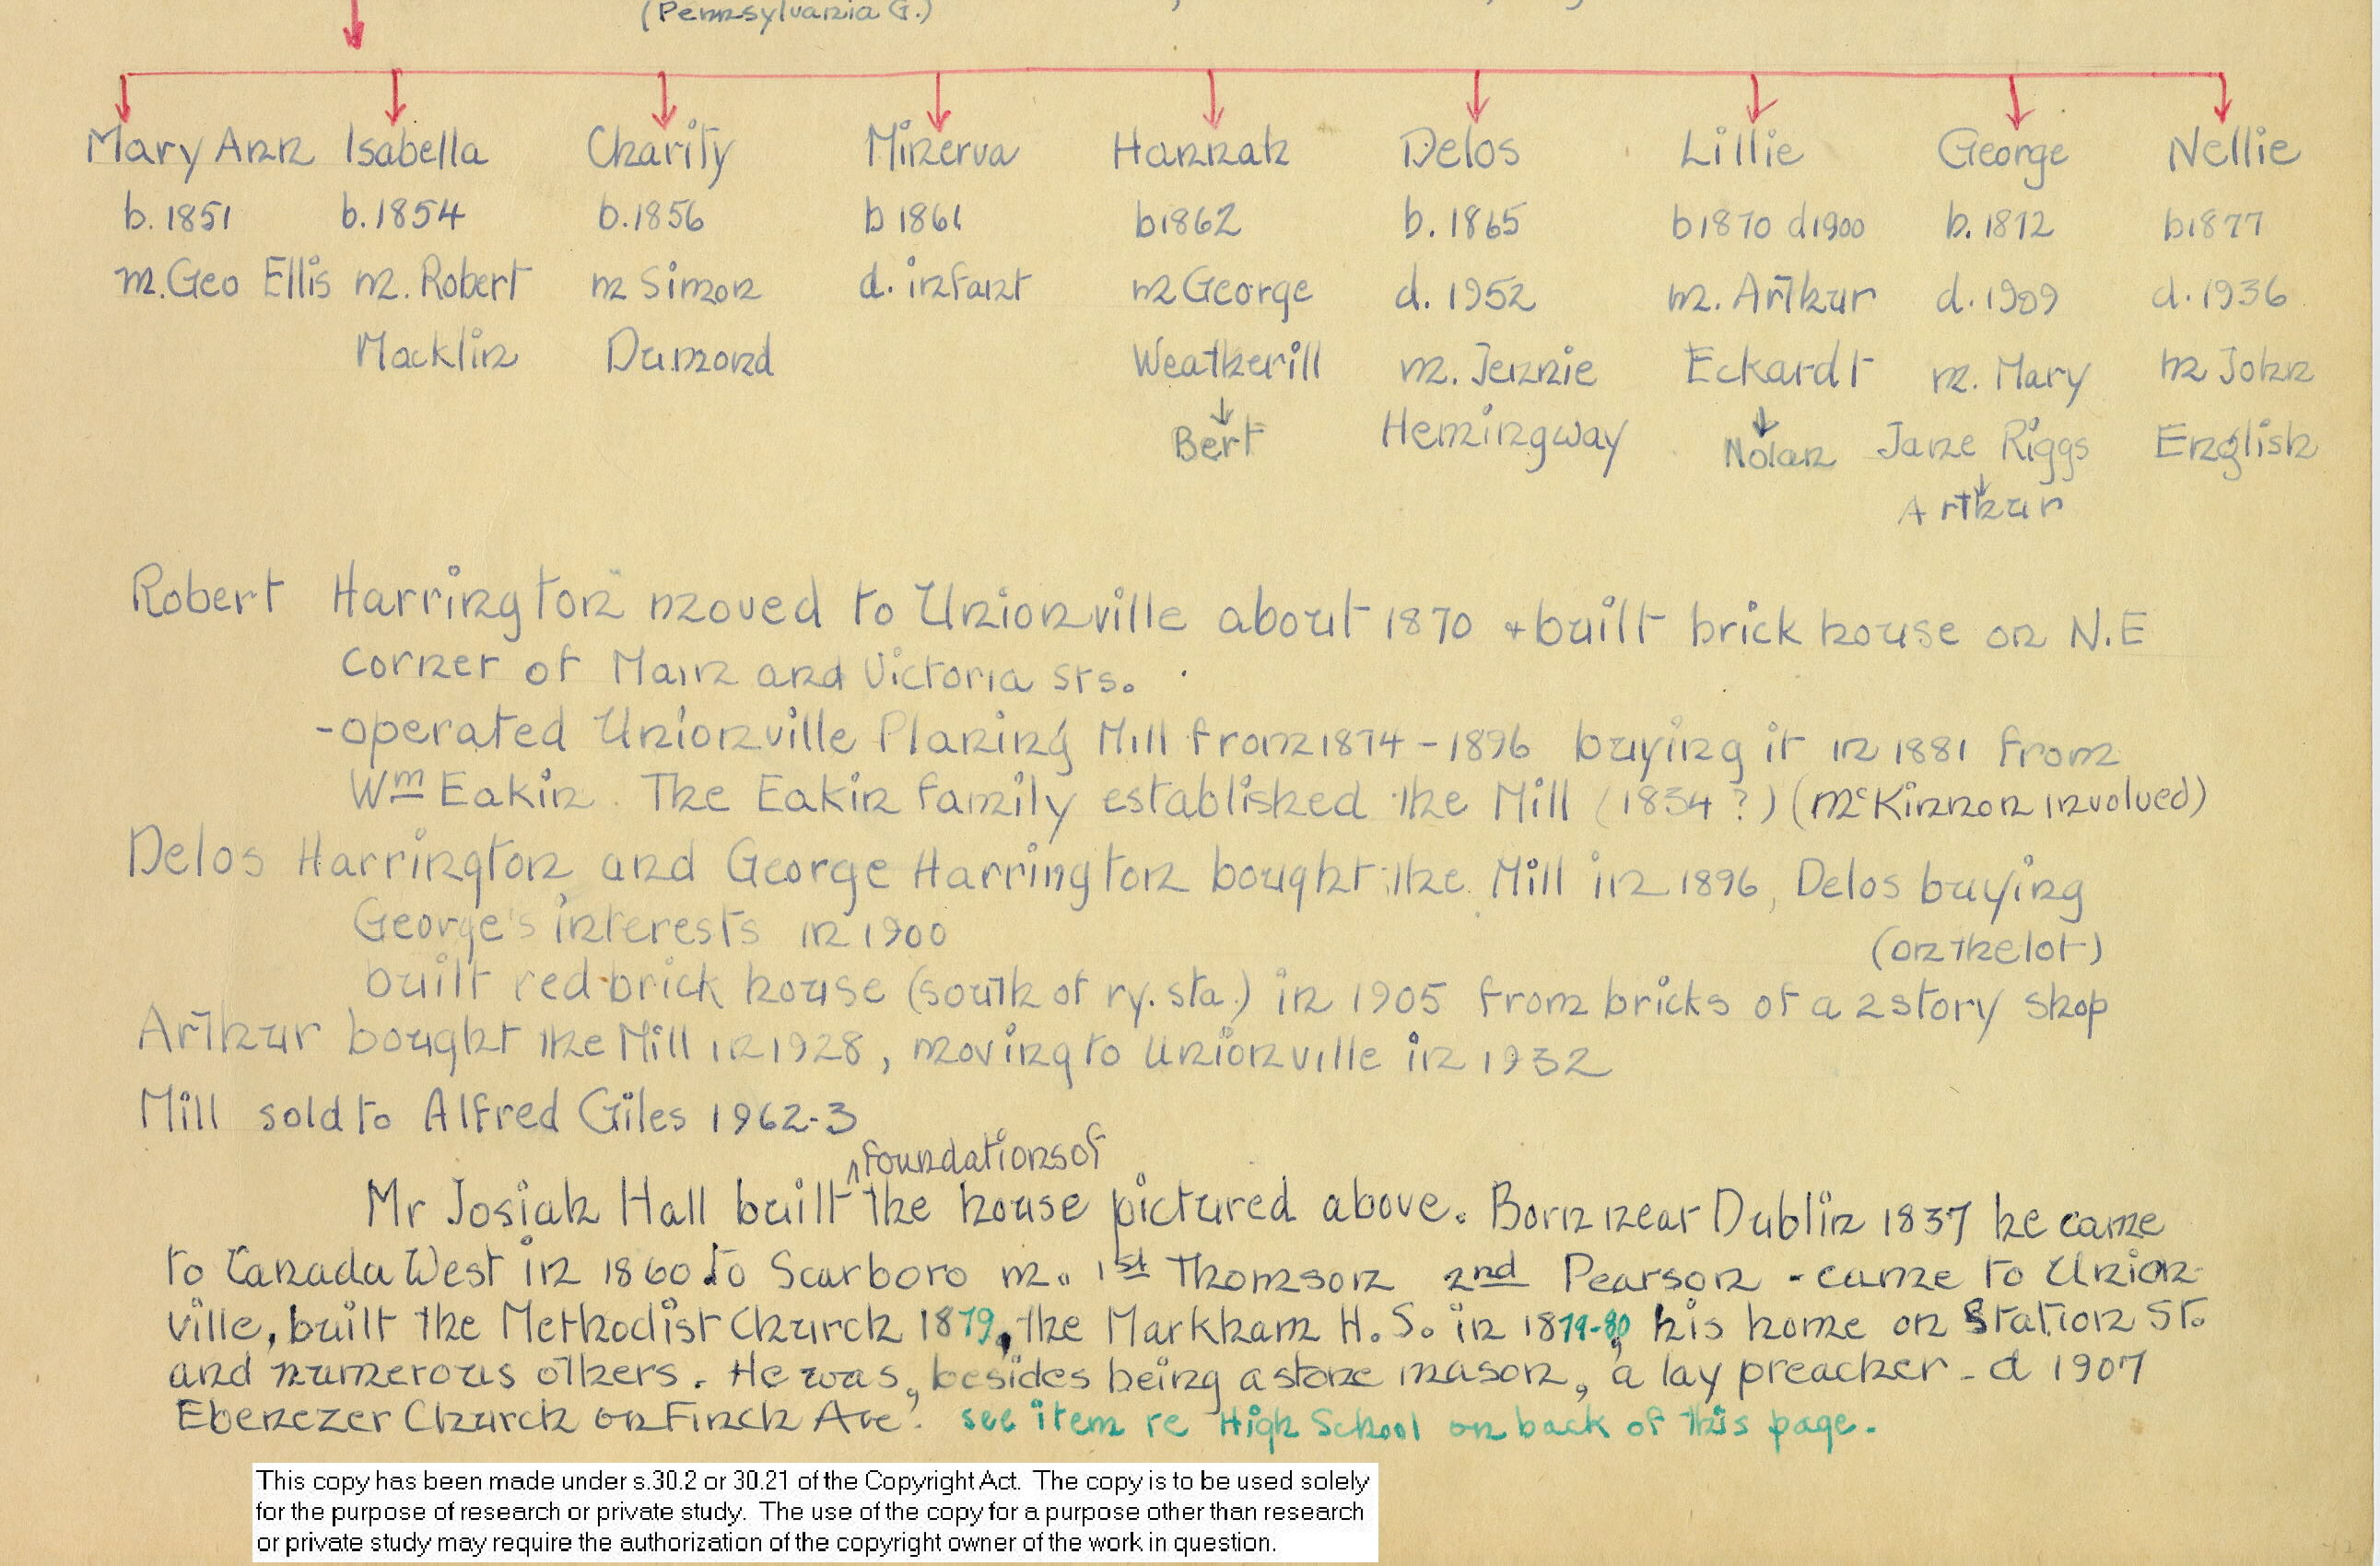 (Pennsylvania G.)
Mary Ann Isabella Charity Minerva Hannah Delos Lillie George Nellie
b. 1851 b. 1854 b. 1856 b 1861 b1862 b. 1865 b1870 d1900 b. 1872 b1877
m. Geo Ellis m. Robert m Simon d. infant m George d. 1952 m. Arthur d. 1909 d. 1936
Macklin Dumond Weatherill m. Jennie Eckardt m. Mary m John
Bert Hemingway Nolan Jane Riggs English
Arthur
Robert Harrington moved to Unionville about 1870 + built brick house on N.E
corner of Main and Victoria sts.
-operated Unionville Planing Mill from 1874-1896 buying it in 1881 from
Wm Eakin. The Eakin family established the Mill (1854?) (McKinnon involved)
Delos Harrington and George Harrington bought the Mill in 1896, Delos buying
George's interests in 1900
(on the lot)
built red-brick house (south of ry. sta.) in 1905 from bricks of a 2 story shop
Arthur bought the Mill in 1928, moving to Unionville in 1932
Mill sold to Alfred Giles 1962-3
foundations of
Mr Josiah Hall built ^ the house pictured above. Born near Dublin 1837 he came
to Canada West in 1860 to Scarboro m. 1st Thomson 2nd Pearson - came to Union-
ville, built the Methodist Church 1879, the Markham H.S. in 1879-80, his home on Station St.
and numerous others. He was, besides being a stone mason, a lay preacher - d 1907
Ebenezer Church on Finch Ave. see item re High School on back of this page.
This copy has been made under s.30.2 or 30.21 of the Copyright Act. The copy is to be used solely
for the purpose of research or private study. The use of the copy for a purpose other than research
or private study may require the authorization of the copyright owner of the work in question.